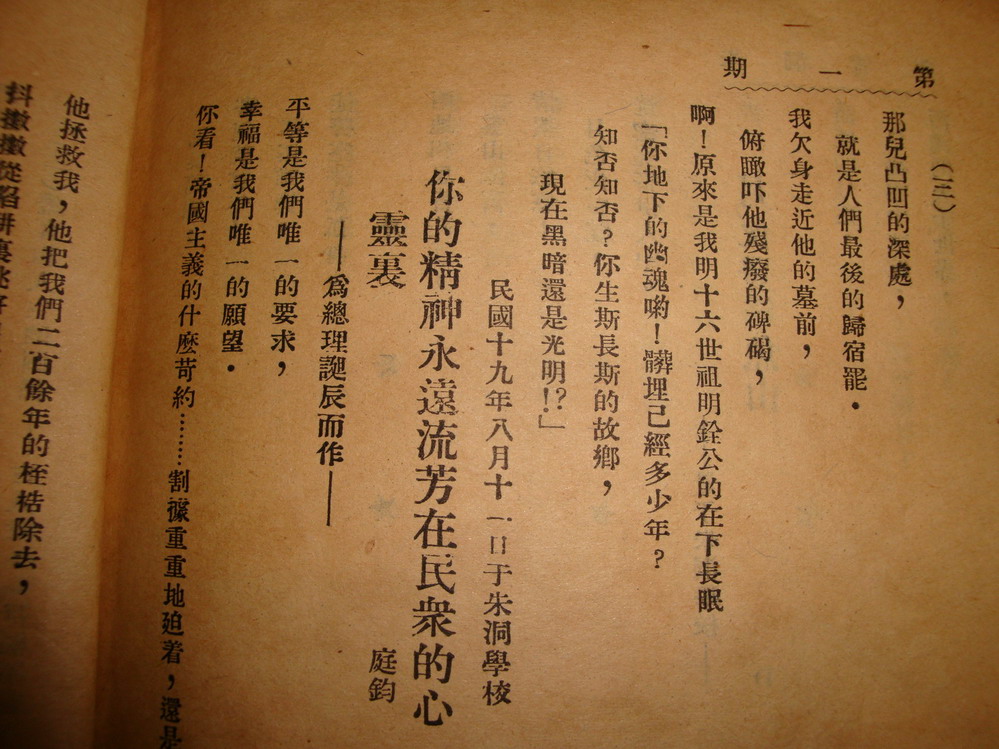 第一期
(三)
那兒凸凹的深處，
就是人們最後的歸宿罷．
我欠身走近他的墓前，
俯瞰吓他殘廢的碑碣，
啊！原來是我明十六世祖明銓公的在下長眠
「你地下的幽魂喲！髒埋已經多少年？
知否知否？你生斯長斯的故鄉，
現在黑暗還是光明！？」
民國十九年八月十一日于朱洞學校
你的精神永遠流芳在民衆的心
靈裏
庭鈞
——爲總理誕辰而作——
平等是我們唯一的要求，
幸福是我們唯一的願望．
你看！帝國主義的什麼苛約……割據重重地廹着，還是
他拯救我，他把我們二百餘年的桎梏除去，
抖擻擻從陷阱裏